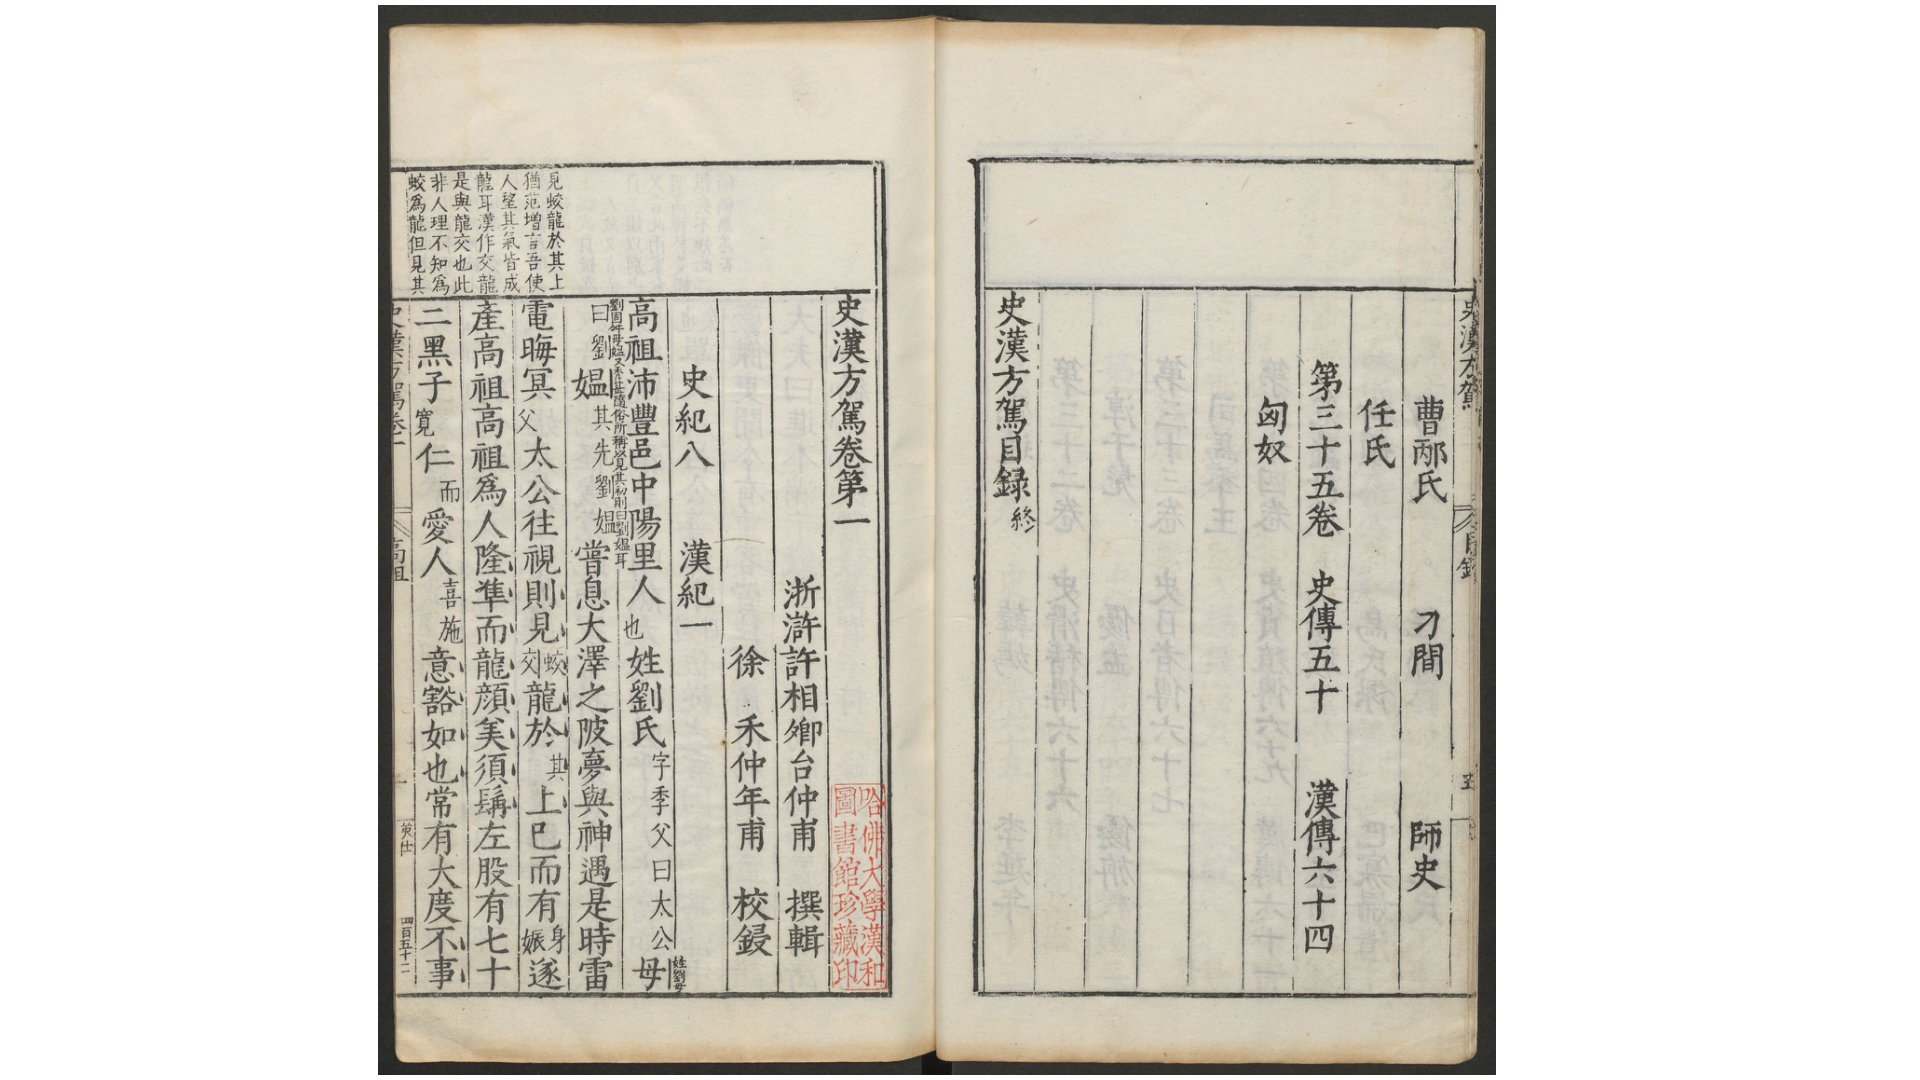 史漢方駕
目錄
五
曹邴氏　刁間　師史
任氏
第三十五卷　史傳五十　漢傳六十四
匈奴
史漢方駕目録終
史漢方駕卷第一
浙滸許相卿台仲甫　撰輯
徐　禾仲年甫　校鋟
史紀八　漢紀一
高祖沛豐邑中陽里人也姓劉氏字季父曰太公母
姓劉母
曰劉媼其先劉媼嘗息大澤之陂夢與神遇是時雷
電晦冥父太公往視則見蛟交龍於其上已而有身娠遂
產高祖高祖爲人隆準而龍顏美須髯左股有七十
二黑子寬仁而愛人喜施意豁如也常有大度不事
見蛟龍於其上
猶范增言吾使
人望其氣皆成
龍耳漢作交龍
是與龍交也此
非人理不知爲
蛟爲龍但見其
史漢方駕卷一
高祖
一
四百五十二
哈佛大學漢和
圖書館珍藏印